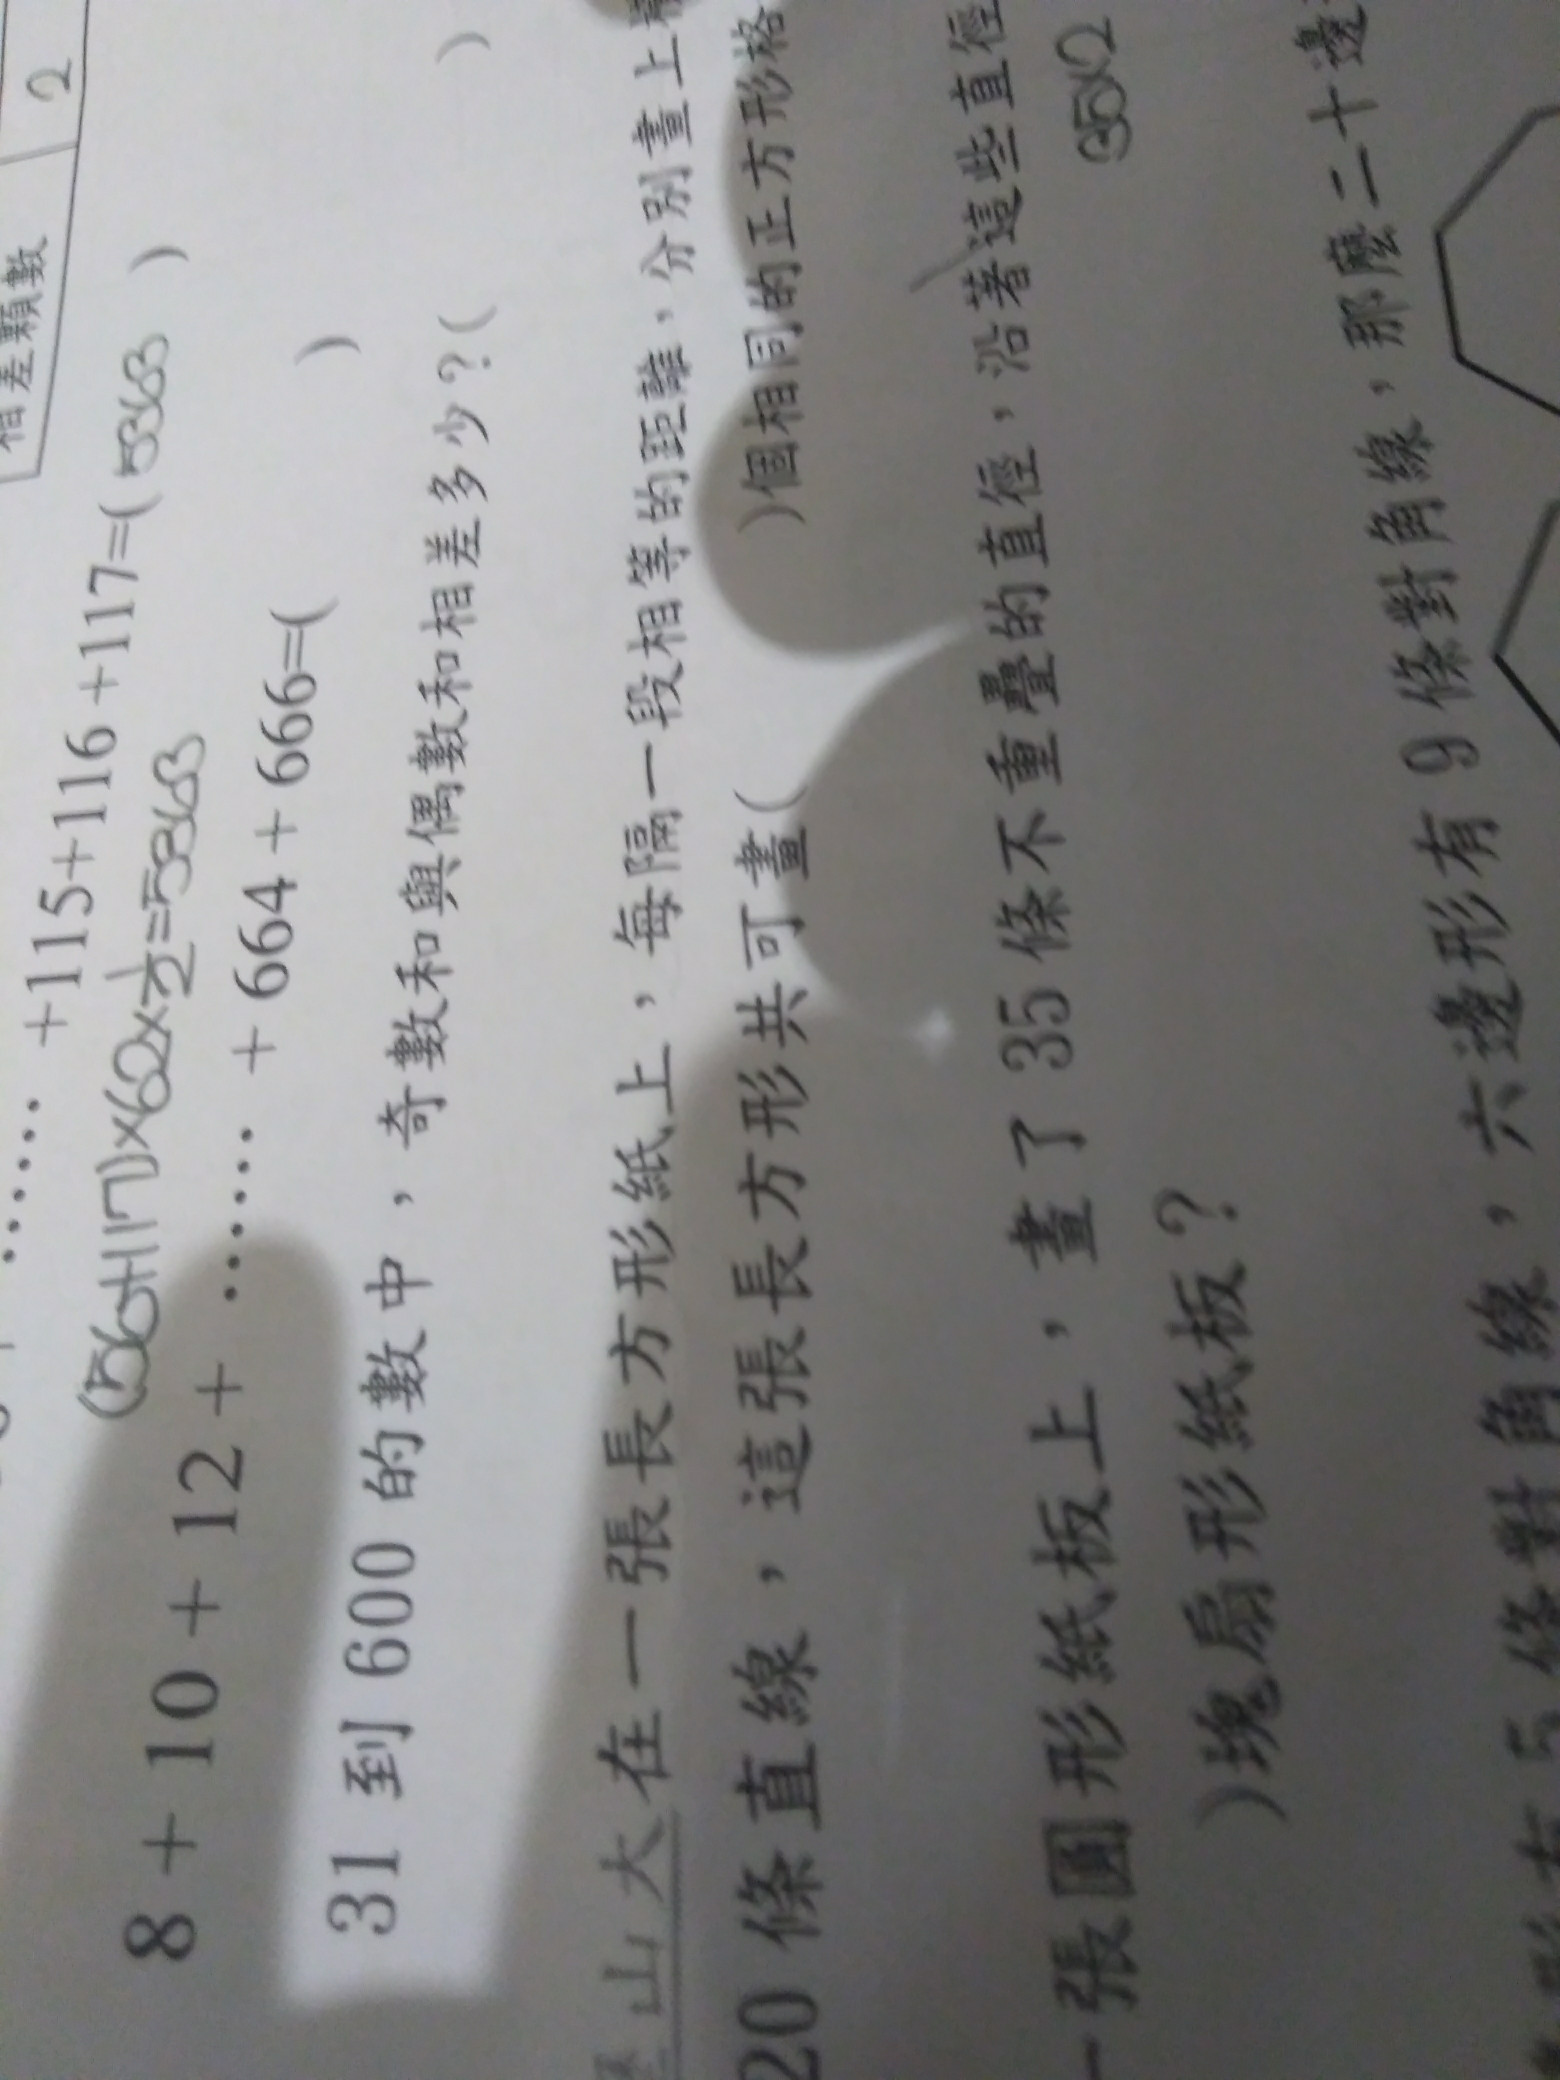 相差顆數 2
…… +115+116 +117=( 5363 )
(56+117)×62×1/2=5363
8 + 10 + 12 + …… + 664 + 666=( )
31 到 600 的數中，奇數和與偶數和相差多少？( )
山大在一張長方形紙上，每隔一段相等的距離，分別畫上
20 條直線，這張長方形共可畫( )個相同的正方形格
一張圓形紙板上，畫了 35 條不重疊的直徑，沿著這些直徑
35×2
)塊扇形紙板？
5 條對角線，六邊形有 9 條對角線，那麼二十邊